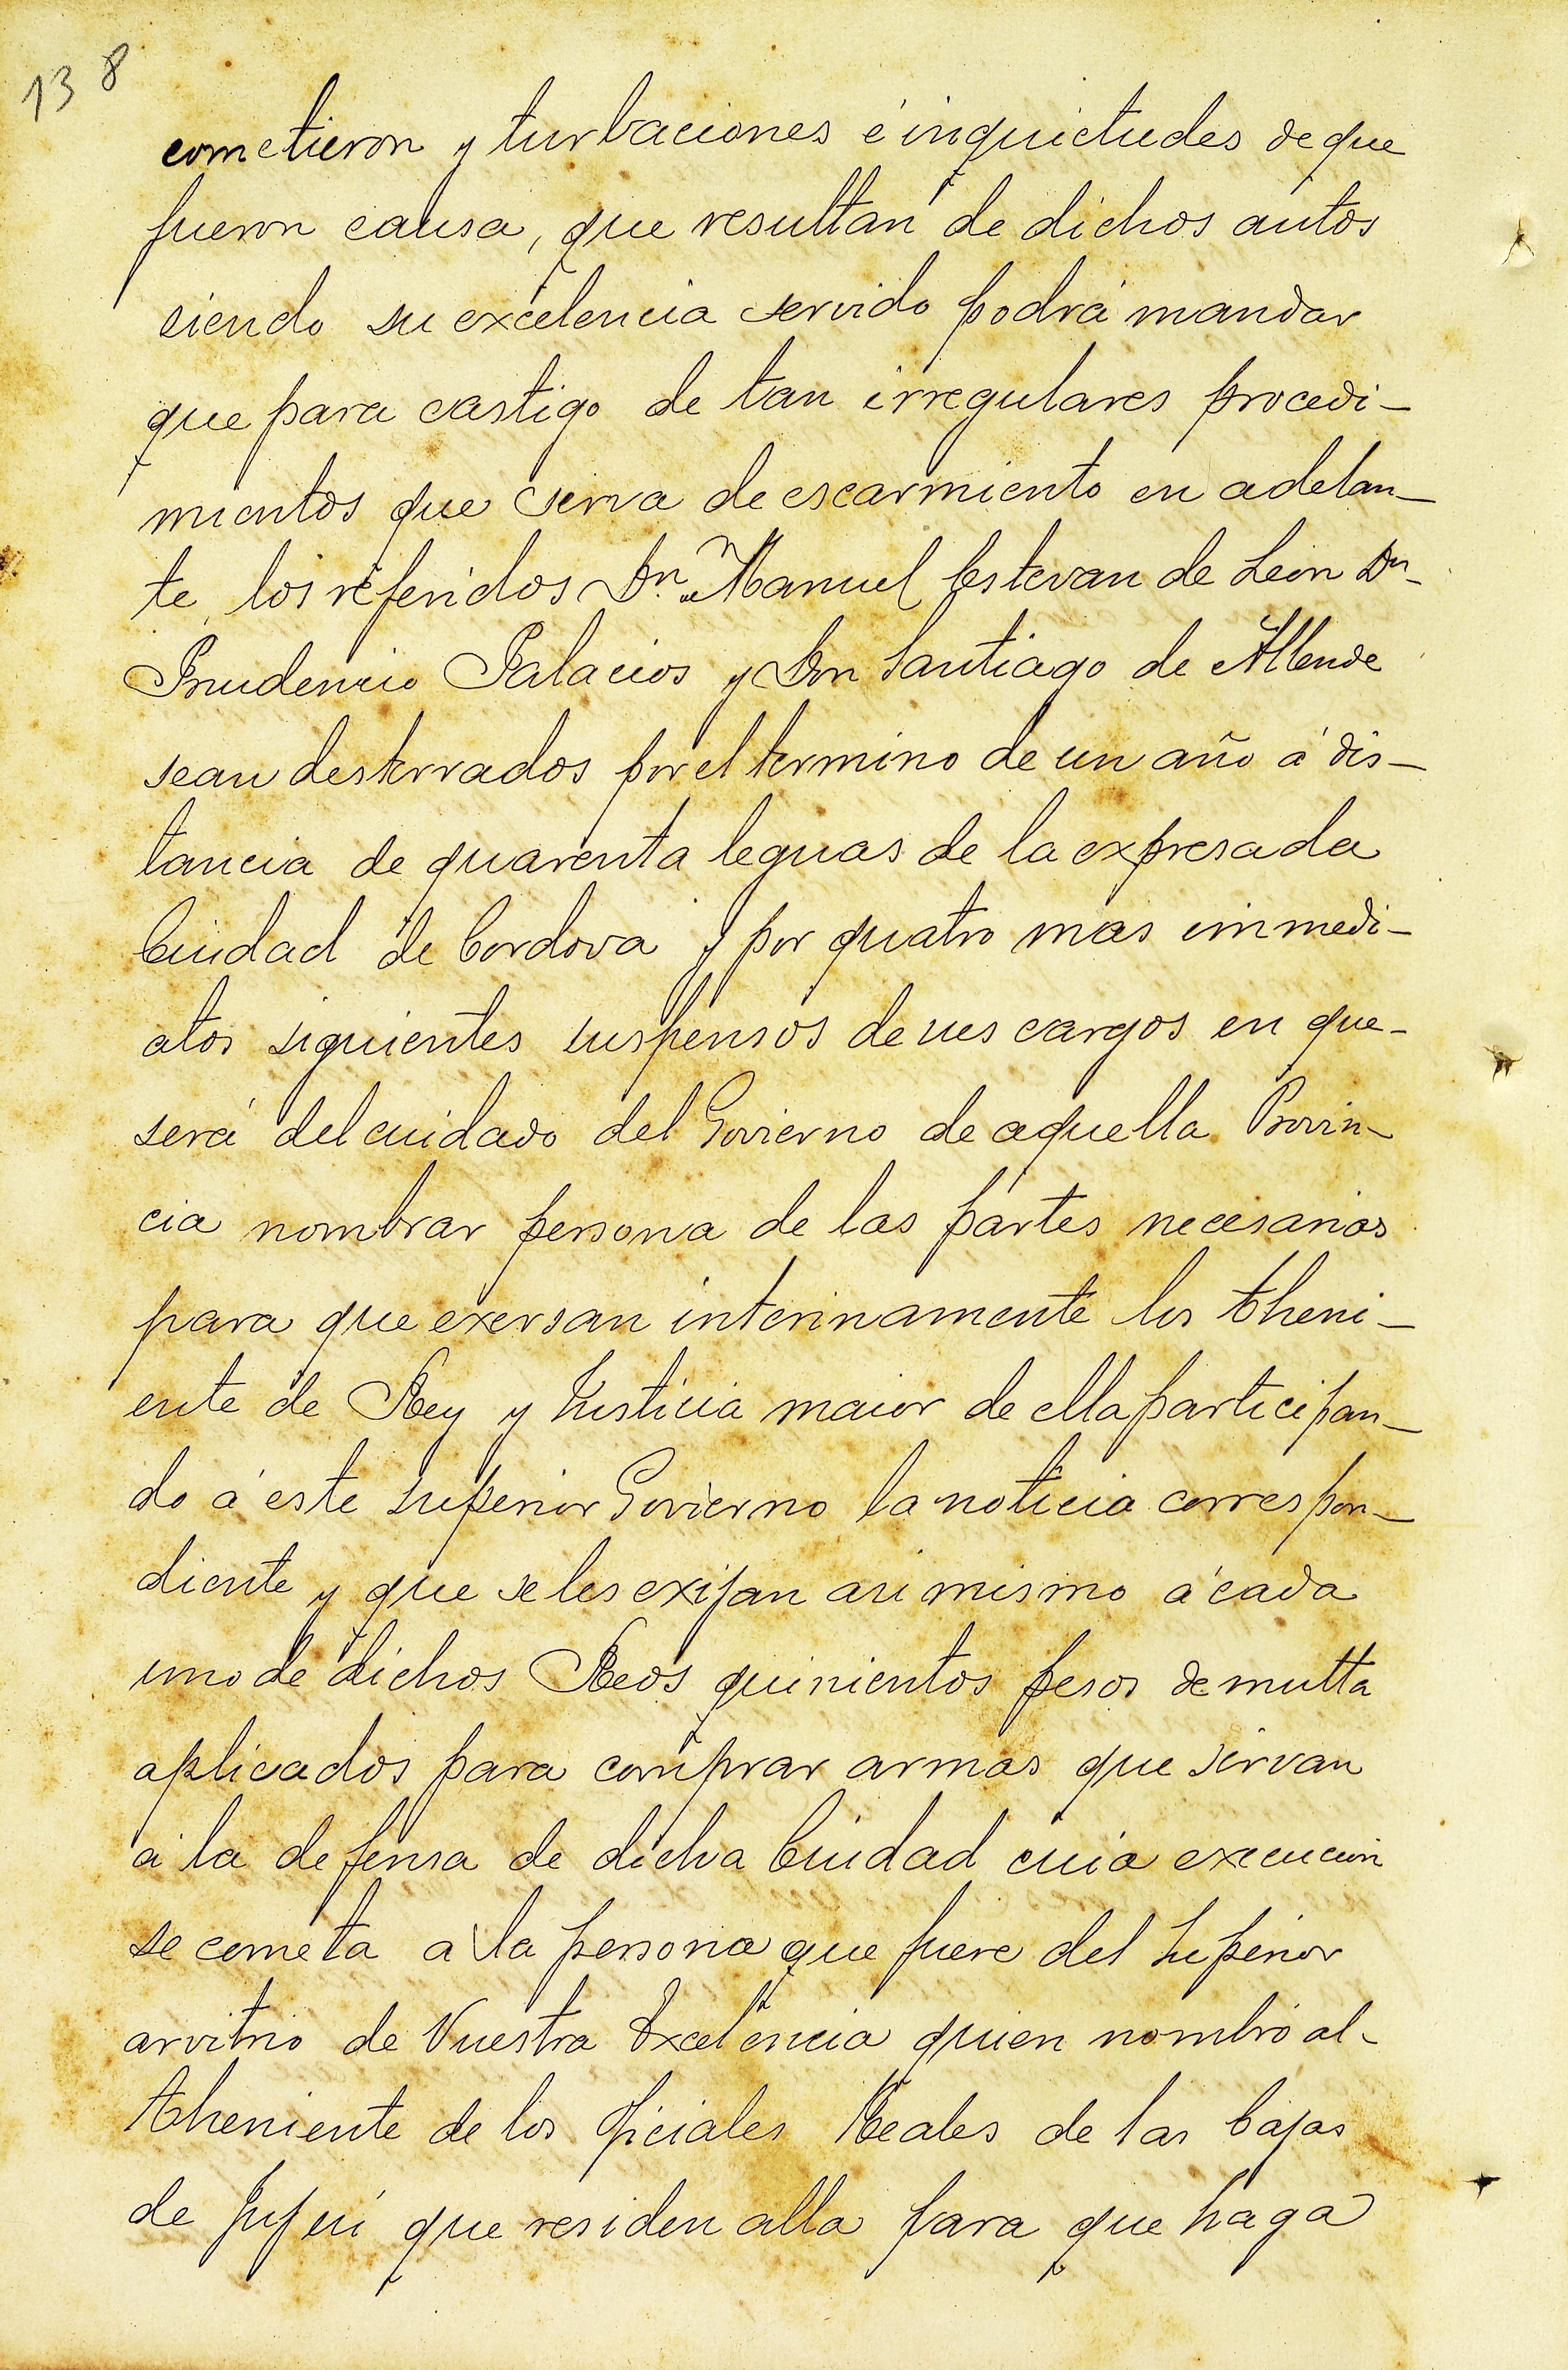 138
cometieron y turbaciones é inquietudes de que
fueron causa, que resultan de dichos autos
siendo su excelencia servido podrá mandar
que para castigo de tan irregulares procedi-
mientos que serva de escarmiento en adelan-
te, los referidos Dn. Manuel Estevan de León Dn-
Prudencio Palacios y Don Santiago de Allende
sean desterrados por el termino de un año á dis-
tancia de quarenta leguas de la expresada
Ciudad de Cordova y por quatro mas immedi-
atos siguientes suspensos de sus cargos en que-
será del cuidado del Govierno de aquella Provin-
cia nombrar persona de las partes necesarias
para que exersan interinamente los theni-
ente de Rey y Justicia maior de ella participan-
do á este superior Govierno la noticia correspon-
diente y que se les exijan asi mismo á cada
uno de dichos Reos quinientos pesos de multa
aplicados para comprar armas que sirvan
á la defensa de dicha Ciudad cuia execucion
se cometa a la persona que fuere del Superior
arvitrio de Vuestra Excelencia quien nombró al-
theniente de los Oficiales Reales de las Cajas
de Jujui que residen alla para que haga